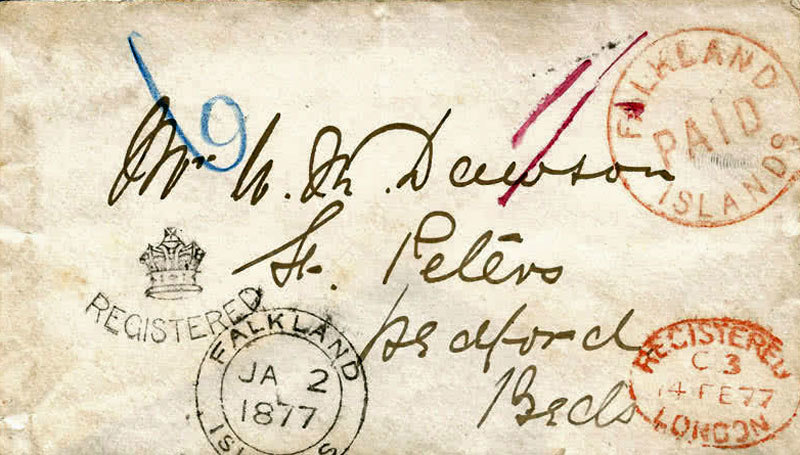 19
FALKLAND ISLANDS
PAID
Mr W. M. Dawson
St. Peters
Bedford
Beds
REGISTERED
FALKLAND
JA 2
1877
REGISTERED
C 3
14 FE 77
LONDON